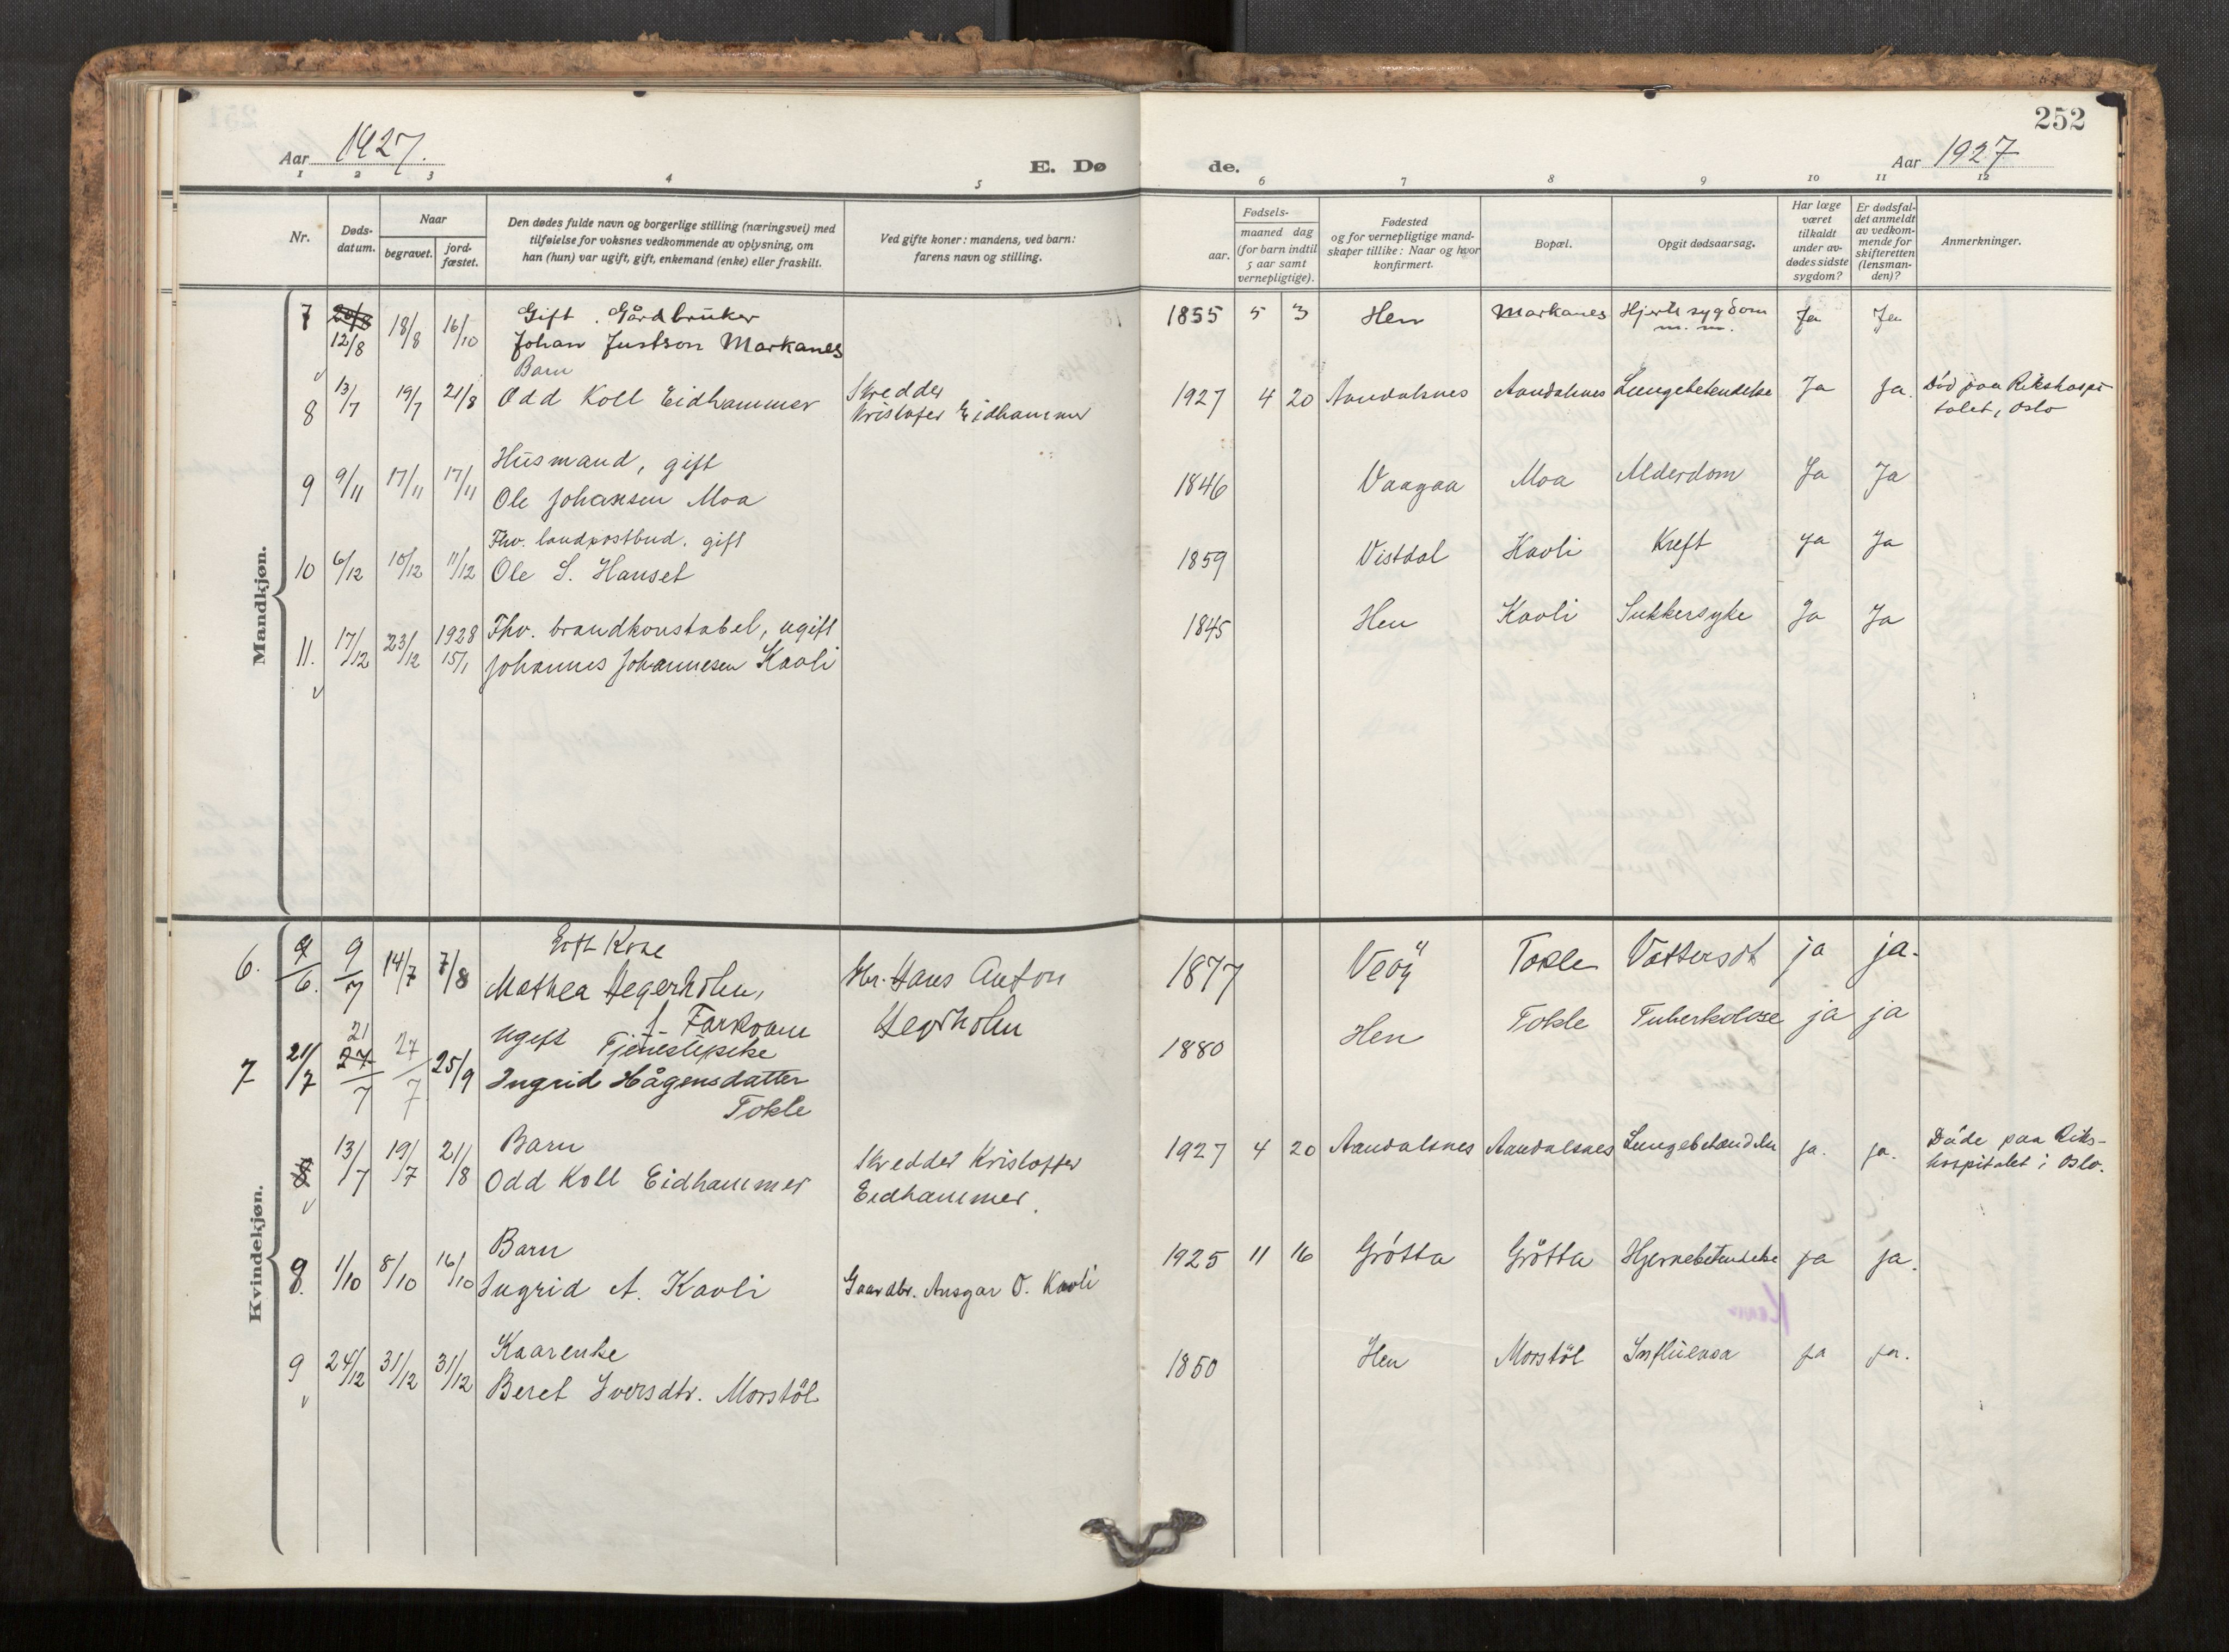 252
Aar 1927.
E. Dø
de.
Aar 1927
1 2 3 4 5 6 7 8 9 10 11 12
Nr.
Døds-
datum.
Naar
begravet.
jord-
fæstet.
Den dødes fulde navn og borgerlige stilling (næringsvei) med
tilføielse for voksnes vedkommende av oplysning, om
han (hun) var ugift, gift, enkemand (enke) eller fraskilt.
Ved gifte koner: mandens, ved barn:
farens navn og stilling.
Fødsels-
aar.
maaned dag
(for barn indtil
5 aar samt
vernepligtige).
Fødested
og for vernepligtige mand-
skaper tillike: Naar og hvor
konfirmert.
Bopæl.
Opgit dødsaarsag.
Har læge
været
tilkaldt
under av-
dødes sidste
sygdom?
Er dødsfal-
det anmeldt
av vedkom-
mende for
skifteretten
(lensman-
den)?
Anmerkninger.
Mandkjøn.
7 12/8 18/8 16/10 Gift. Gårdbruker
Johan Justson Markanes
1855 5 3 Hen Markanes Hjerte sygdom
m. m.
Ja Ja
Barn
8 13/7 19/7 21/8 Odd Koll Eidhammer
Skredder
Kristofer Eidhammer
1927 4 20 Aandalsnes Aandalsnes Lungebetendelse Ja Ja. Död paa Rikshospi-
talet, Oslo
Husmand, gift
9 9/11 17/11 17/11 Ole Johansen Moa
1846 Vaagaa Moa Alderdom Ja Ja
Fhv. landpostbud. gift
10 6/12 10/12 11/12 Ole S. Hanset
1859 Vistdal Kavli Kreft ja Ja
11. 17/12 23/12 1928
15/1
Fhv. brandkonstabel, ugift
Johannes Johannesen Kavli
1845 Hen Kavli Sukkersyke Ja Ja
Kvindekjøn.
6. 9/7 14/7 7/8 Gift Kone
Mathea Hegerholm,
f. Farkvam
Hr. Hans Anton
Hegrholm
1877 Veöy Tokle Vattersot ja ja.
7 21/7 21 27/7 27/7 25/9 Ugift Tjenestepike
Ingrid Hågensdatter
Tokle
1880 Hen Tokle Tuberkolose ja ja
8 13/7 19/7 21/8 Barn
Odd Koll Eidhammer
Skredder Kristoffer
Eidhammer.
1927 4 20 Aandalsnes Aandalsnes Lungebetændelse ja. ja. Döde paa Riks-
hospitalet i Oslo.
8. 1/10 8/10 16/10 Barn
Ingrid A. Kavli
Gaardbr. Ansgar O. Kavli
1925 11 16 Grötta Grötta Hjernebetendelse ja ja.
9 24/12 31/12 31/12 Kaarenke
Beret Iversdtr. Morstöl
1850 Hen Morstöl Influensa ja ja.